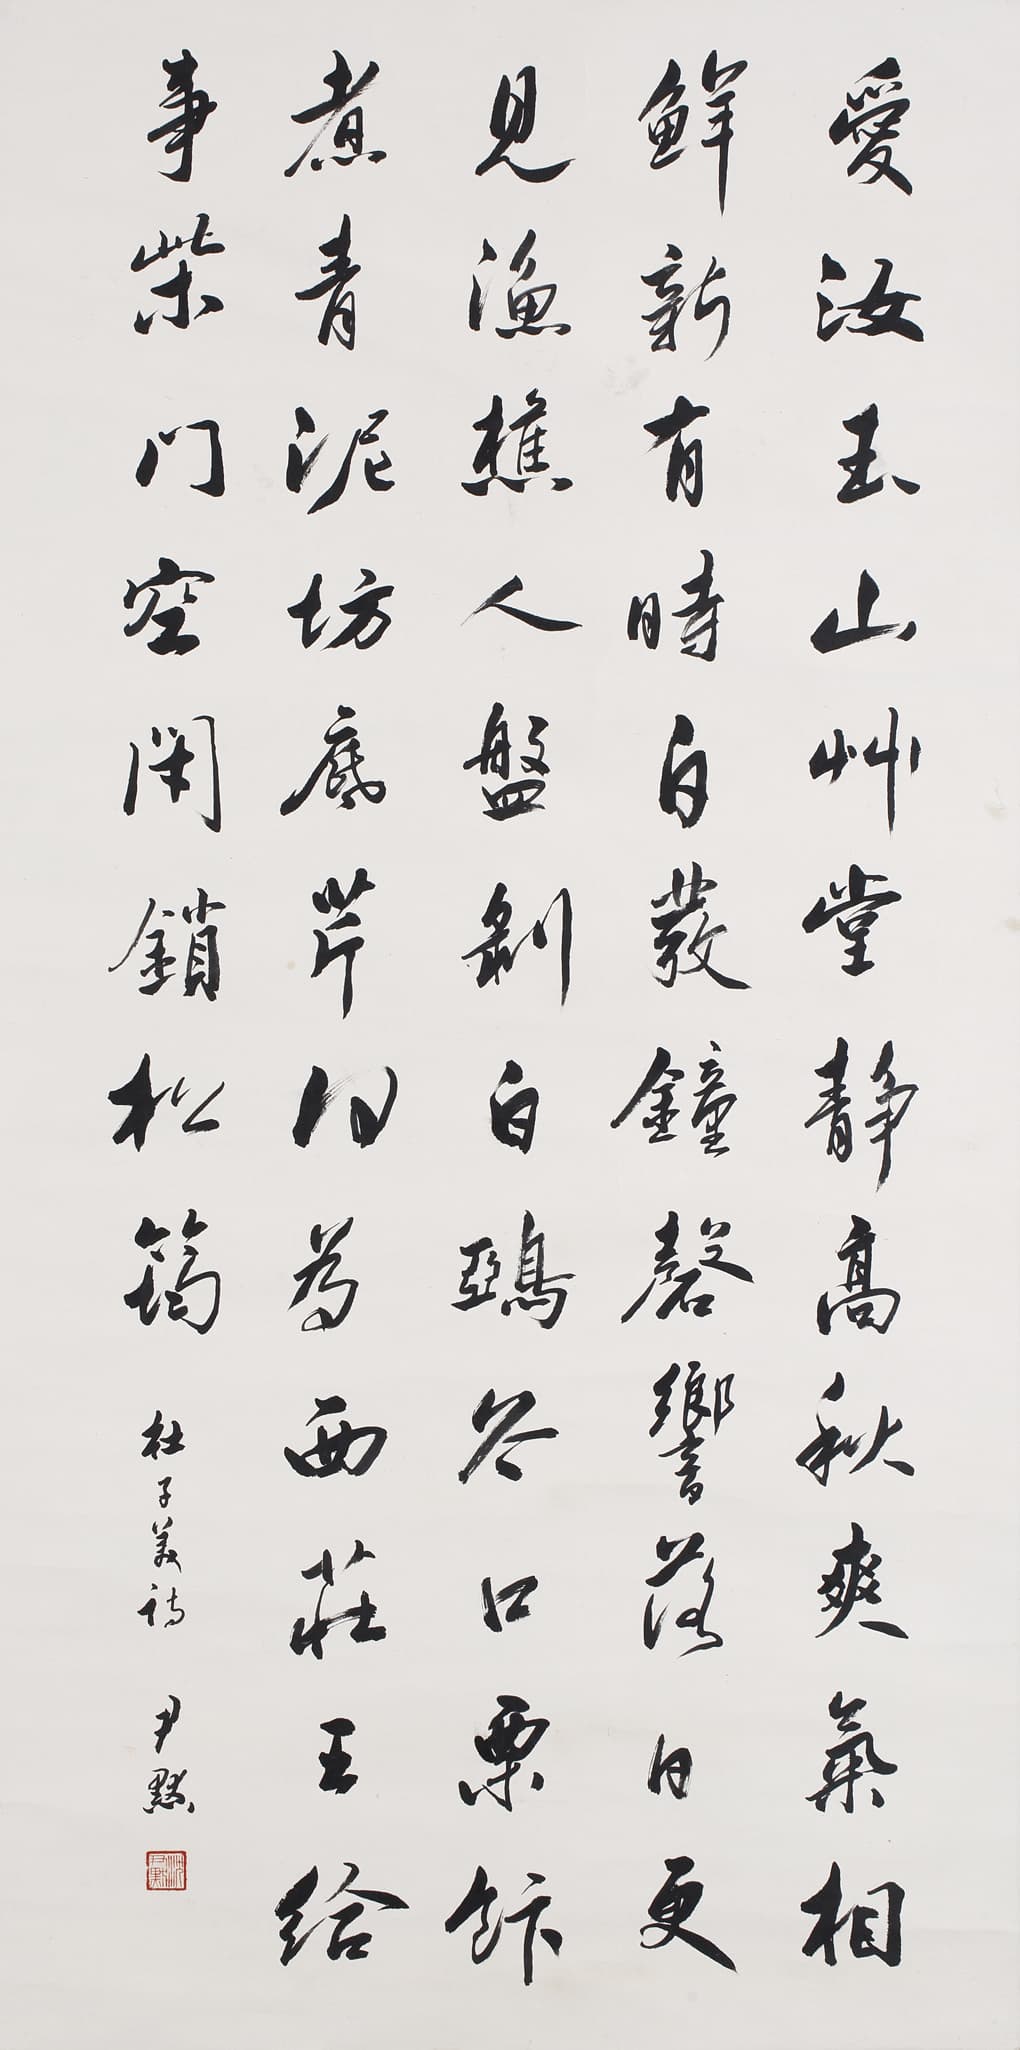 愛汝玉山艸堂靜高秋爽氣相
鮮新有時自發鐘磬響落日更
見漁樵人盤剝白鵶谷口栗飰
煮青泥坊底芹何為西莊王給
事柴門空閉鎖松筠 杜子美詩 尹默
沈尹默